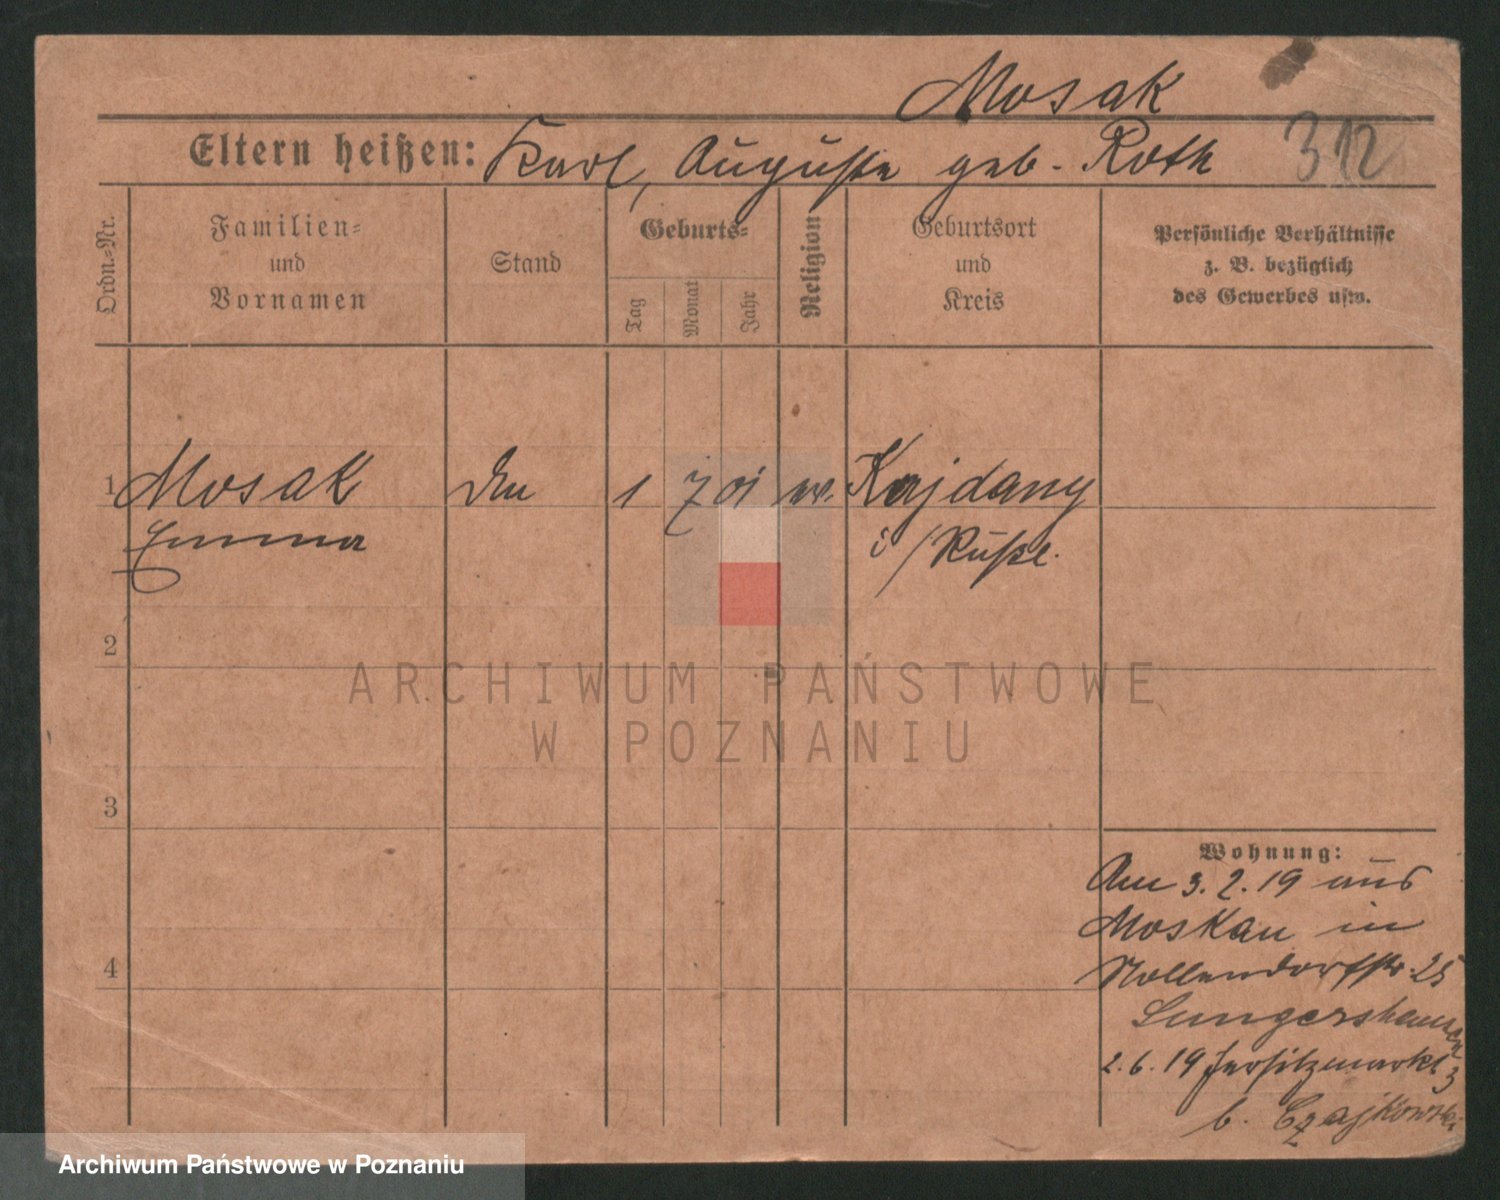 Mosak
Eltern heißen: Karl, Auguste geb. Roth
312
Ordn.-Nr.
Familien-
und
Vornamen
Stand
Geburts-
Tag
Monat
Jahr
Religion
Geburtsort
und
Kreis
Persönliche Verhältnisse
z. B. bezüglich
des Gewerbes usw.
1 Mosak 1 7 01 Kajdany
Emma i/Rußl.
2
ARCHIWUM PAŃSTWOWE
W POZNANIU
3
Wohnung:
Am 3. 2. 19 aus
Moskau in
4
Nollendorfstr. 25
Sungershausen
2. 6. 19 Jersitzmarkt 3
b. Czajkowski
Archiwum Państwowe w Poznaniu